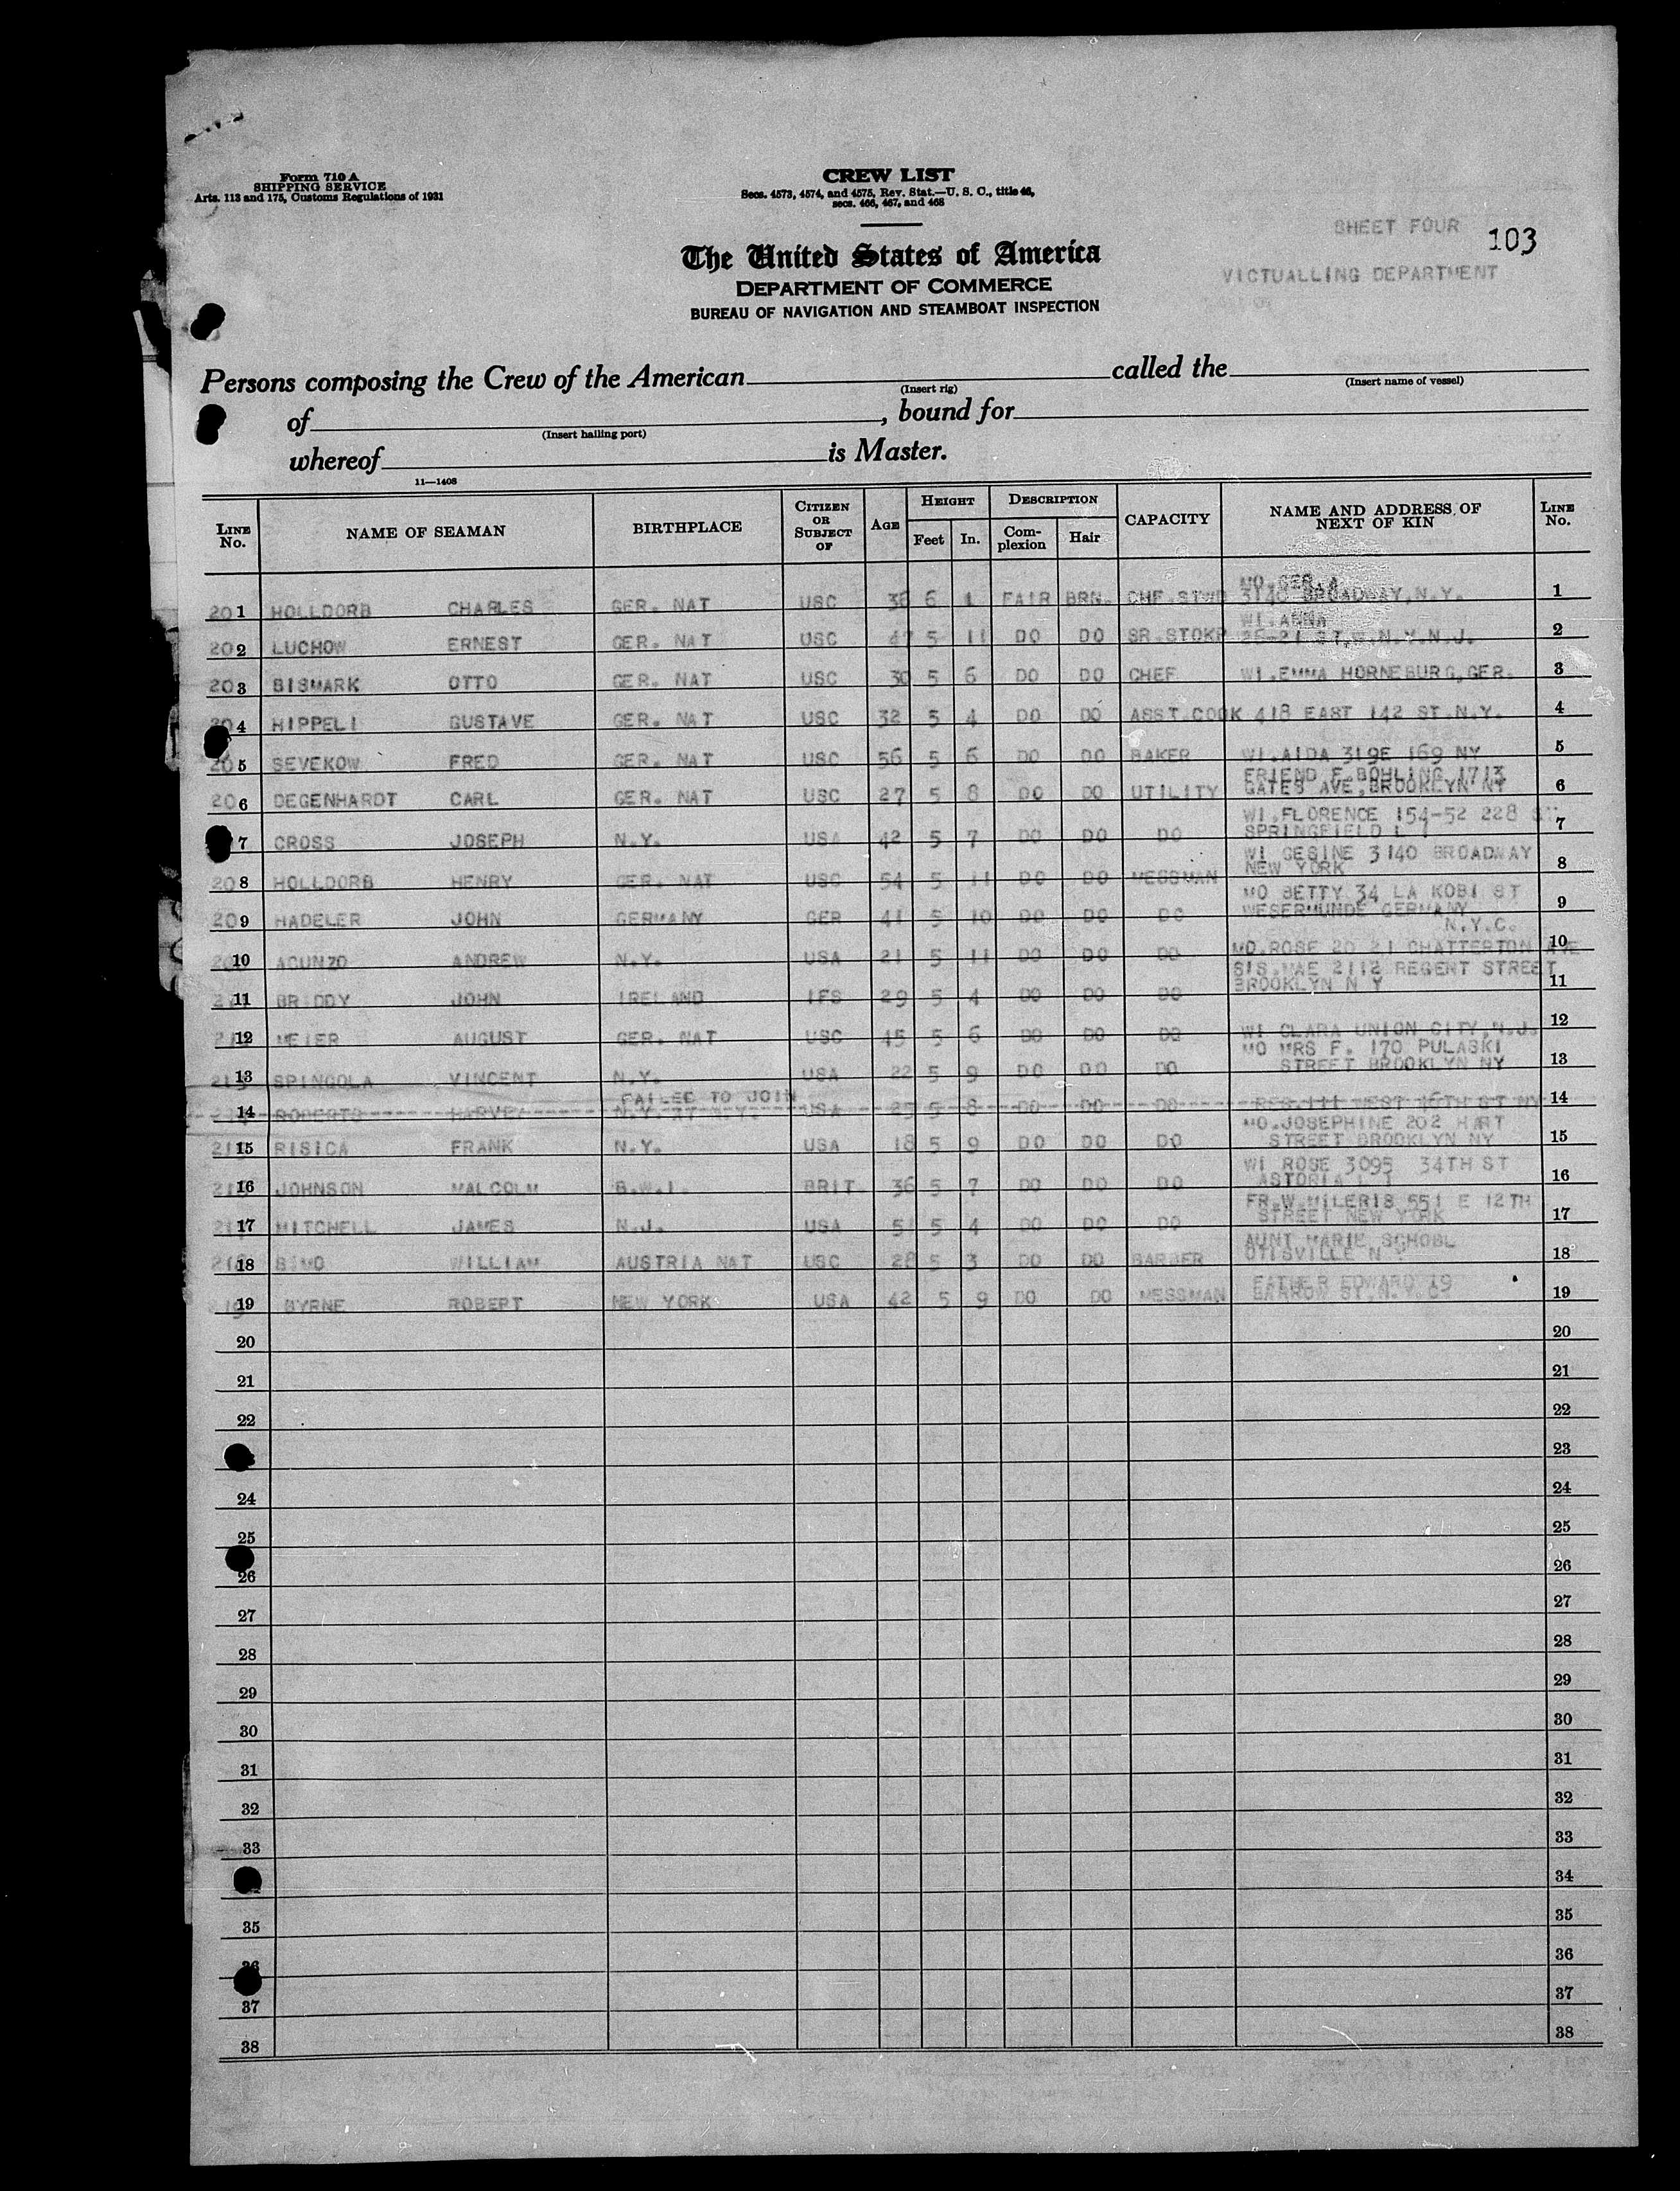 Form 710 A
SHIPPING SERVICE
Arts. 113 and 175, Customs Regulations of 1931
CREW LIST
Secs. 4573, 4574, and 4575, Rev. Stat.—U. S. C., title 46,
secs. 466, 467, and 468
SHEET FOUR 103
VICTUALLING DEPARTMENT
The United States of America
DEPARTMENT OF COMMERCE
BUREAU OF NAVIGATION AND STEAMBOAT INSPECTION
Persons composing the Crew of the American called the
(Insert rig) (Insert name of vessel)
of , bound for
(Insert hailing port)
whereof is Master.
11—1408
LINE No. NAME OF SEAMAN BIRTHPLACE CITIZEN OR SUBJECT OF AGE HEIGHT Feet In. DESCRIPTION Complexion Hair CAPACITY NAME AND ADDRESS OF NEXT OF KIN LINE No.
MO.
201 HOLLDORB CHARLES GER. NAT USC 36 6 1 FAIR BRN. CHF.STWD 3140 BROADWAY,N.Y. 1
WI.ANNA
202 LUCHOW ERNEST GER. NAT USC 47 5 11 DO DO SR.STOKP N.Y.N.J. 2
203 BISMARK OTTO GER. NAT USC 30 5 6 DO DO CHEF WI.EMMA HORNEBURG,GER. 3
4 HIPPELI GUSTAVE GER. NAT USC 32 5 4 DO DO ASST.COOK 418 EAST 142 ST.N.Y. 4
205 SEVEKOW FRED GER. NAT USC 56 5 6 DO DO BAKER WI.AIDA 319E 169 NY 5
FRIEND F.BOHLING 1713
206 DEGENHARDT CARL GER. NAT USC 27 5 8 DO DO UTILITY GATES AVE,BROOKLYN NY 6
WI.FLORENCE 154-52 228
7 CROSS JOSEPH N.Y. USA 42 5 7 DO DO DO SPRINGFIELD L I 7
WI GESINE 3140 BROADWAY
208 HOLLDORB HENRY GER. NAT USC 54 5 11 DO DO MESSMAN NEW YORK 8
MO BETTY 34 LA KOBI ST
209 HADELER JOHN GERMANY GER 41 5 10 DO DO DO WESERMUNDE GERMANY 9
N.Y.C.
10 ACUNZO ANDREW N.Y. USA 21 5 11 DO DO DO MO.ROSE 20 21 CHATTERTON AVE 10
SIS.MAE 2112 REGENT STREET
11 BRIDDY JOHN IRELAND IFS 29 5 4 DO DO DO BROOKLYN N Y 11
12 MEIER AUGUST GER. NAT USC 45 5 6 DO DO DO WI CLARA UNION CITY,N.J. 12
MO MRS F. 170 PULASKI
13 SPINGOLA VINCENT N.Y. USA 22 5 9 DO DO DO STREET BROOKLYN NY 13
FAILED TO JOIN
14 ROBERTS HARVEY N.Y. USA 25 5 8 DO DO DO RES.111 WEST 46TH ST NY 14
MO.JOSEPHINE 202 HART
15 RISICA FRANK N.Y. USA 18 5 9 DO DO DO STREET BROOKLYN NY 15
WI ROSE 3095 34TH ST
16 JOHNSON MALCOLM B.W.I. BRIT 36 5 7 DO DO DO ASTORIA L I 16
FR.W.MILERIS 551 E 12TH
17 MITCHELL JAMES N.J. USA 51 5 4 DO DO DO STREET NEW YORK 17
AUNT MARIE SCHOBL
18 WILLIAM AUSTRIA NAT USC 28 5 3 DO DO BARBER OTISVILLE N Y 18
FATHER EDWARD 19
19 BYRNE ROBERT NEW YORK USA 42 5 9 DO DO MESSMAN BARROW ST.N.Y.C. 19
20 20
21 21
22 22
23
24 24
25 25
26 26
27 27
28 28
29 29
30 30
31 31
32 32
33 33
34
35 35
36 36
37 37
38 38